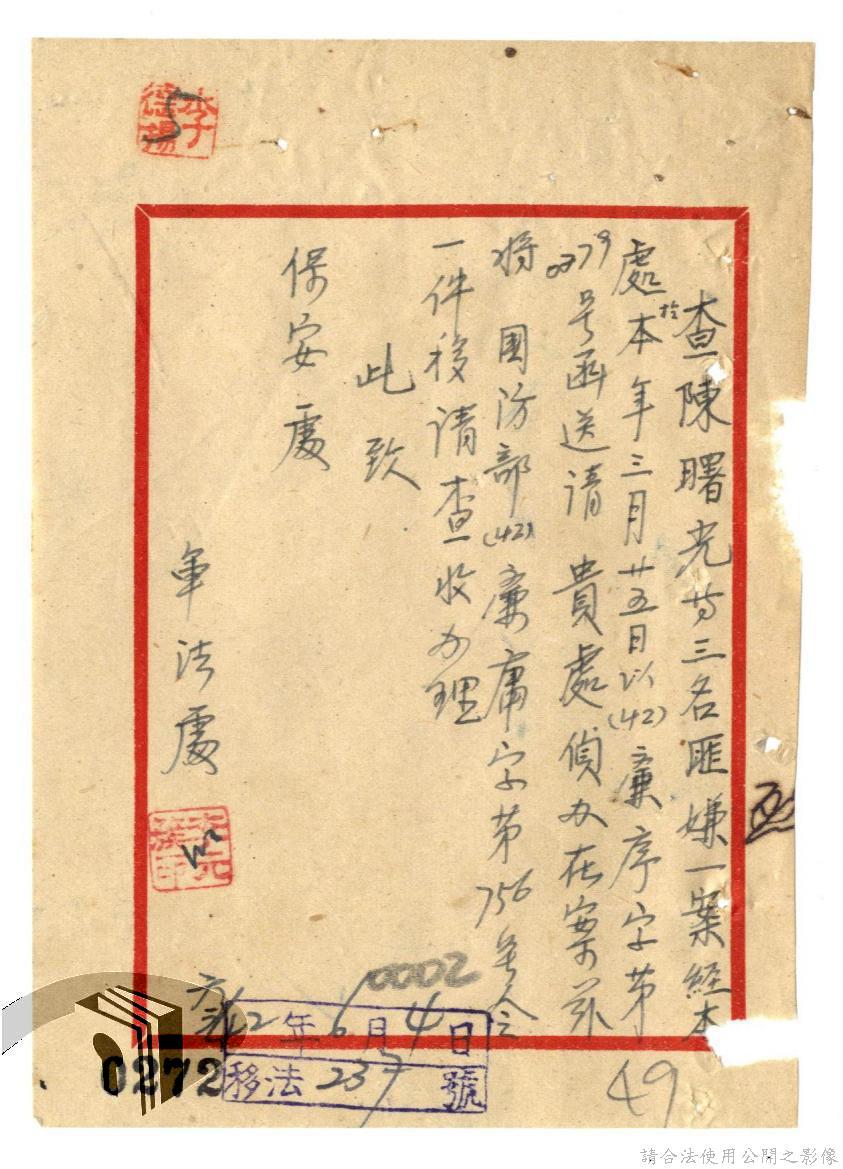 查陳曙光等三名匪嫌一案經本
處於本年三月廿五日以(42)廉序字第
0379号函送請 貴處偵办在案茲
將 國防部(42)廉庸字第756号令
一件移請查收办理
此致
保安處
軍法處
0002
42年6月4日
移法237號
0272
49
請合法使用公開之影像